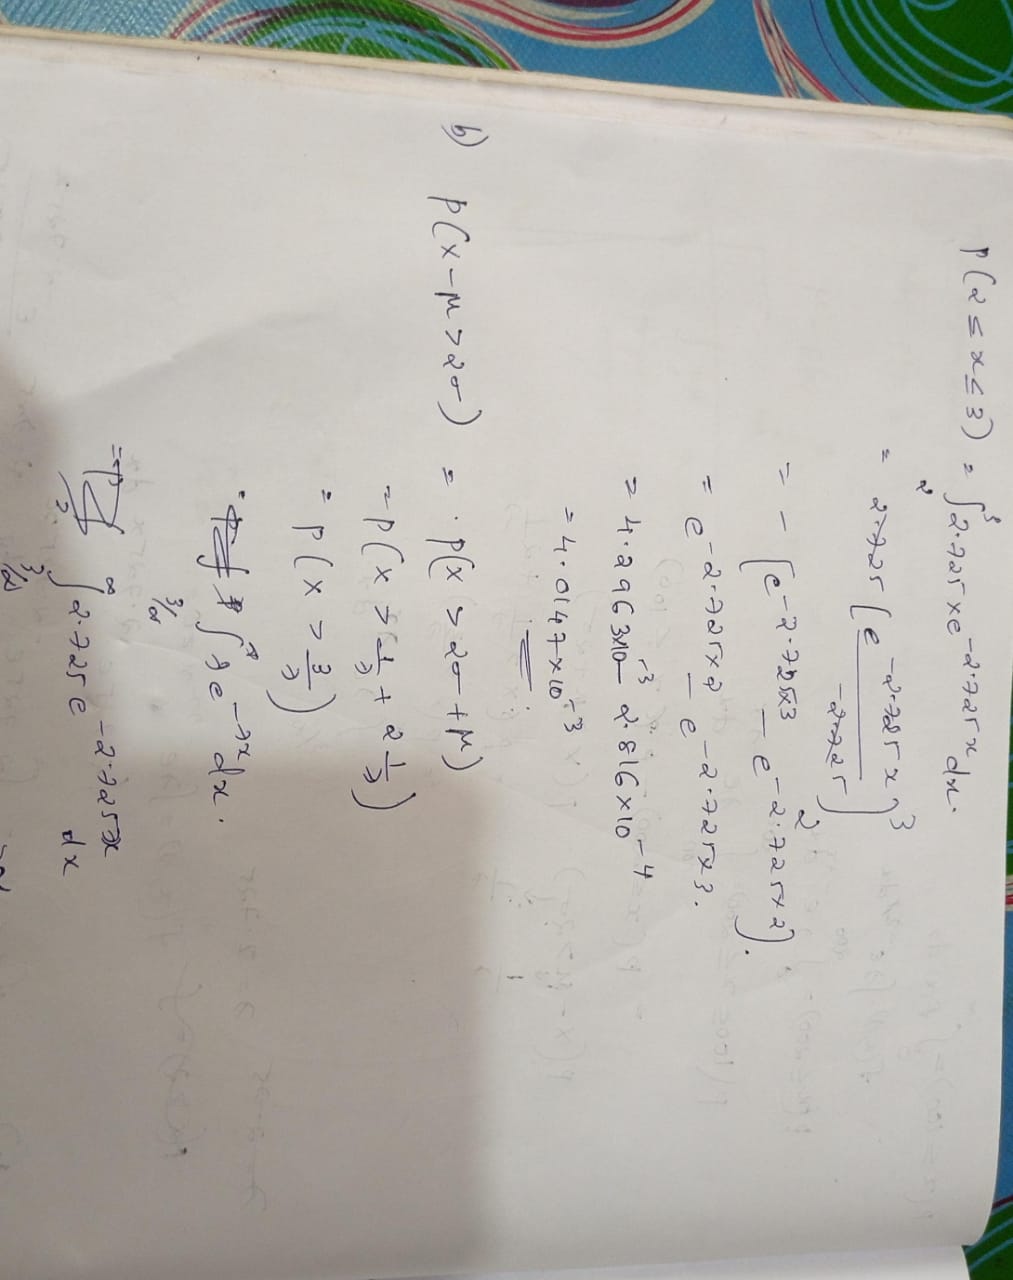 P(2 ≤ x ≤ 3) = ∫₂³ 2.725 × e^{-2.725 x} dx.
= 2.725 [e^{-2.725 x} / -2.725]₂³
= - [e^{-2.725×3} - e^{-2.725×2}].
= e^{-2.725×2} - e^{-2.725×3}.
= 4.2963×10^{-3} - 2.816×10^{-4}
= 4.0147×10^{-3}
b) P(X-μ > 2σ) = P(X > 2σ + μ)
= P(X > 1/λ + 2 1/λ)
= P(X > 3/λ)
∫ λ e^{-λx} dx.
= ∫^∞ 2.725 e^{-2.725x} dx